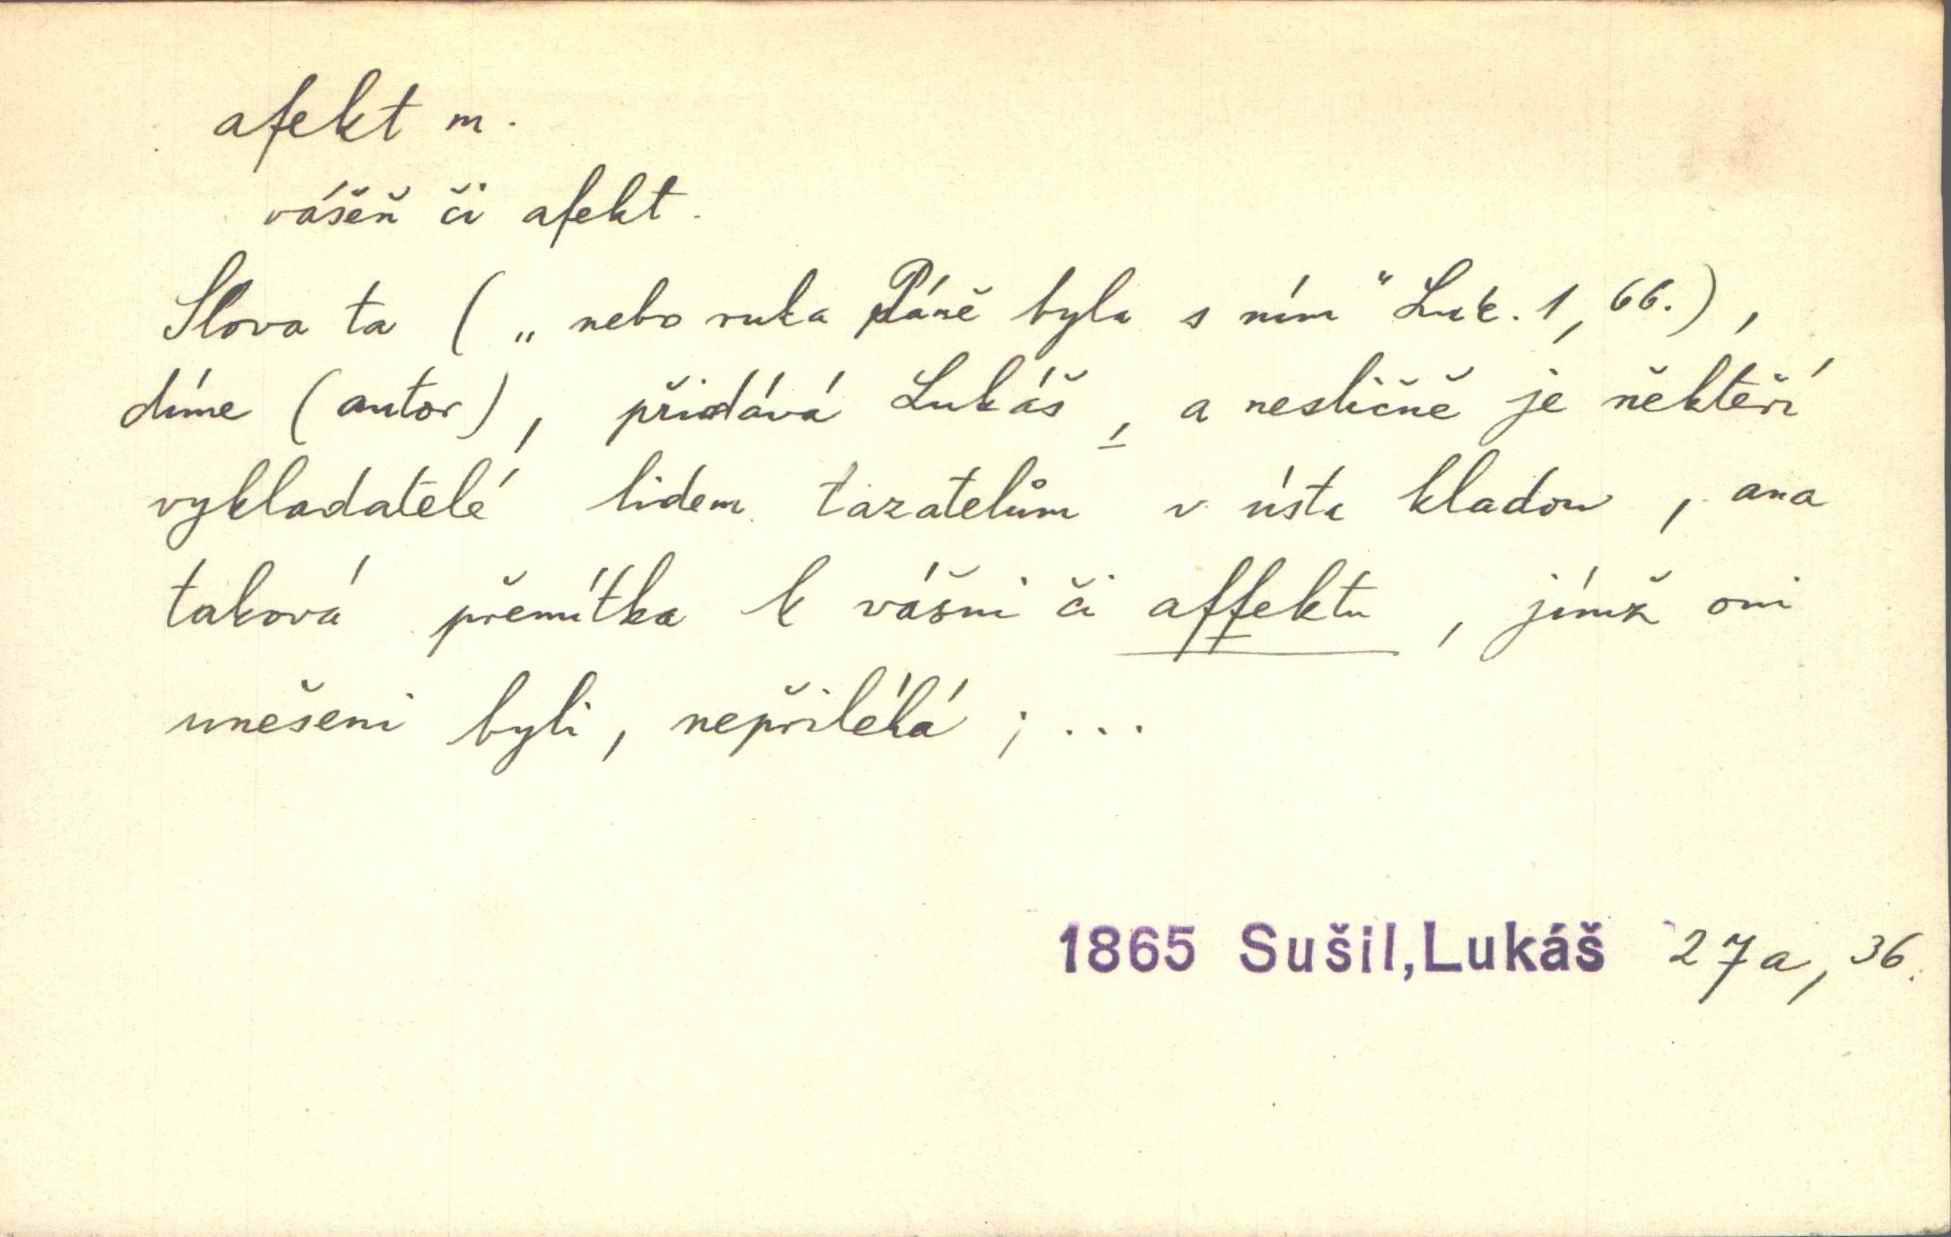 afekt m.
vášeň či afekt.
Slova ta („nebo ruka Páně byla s ním“ Luk. 1, 66.),
díme (autor), přidává Lukáš, a nesličně je někteří
vykladatelé lidem tazatelům v ústa kladou, ana
taková přemítka k vášni či affektu, jímž oni
unešeni byli, nepřiléhá; ...
1865 Sušil,Lukáš 27a, 36.